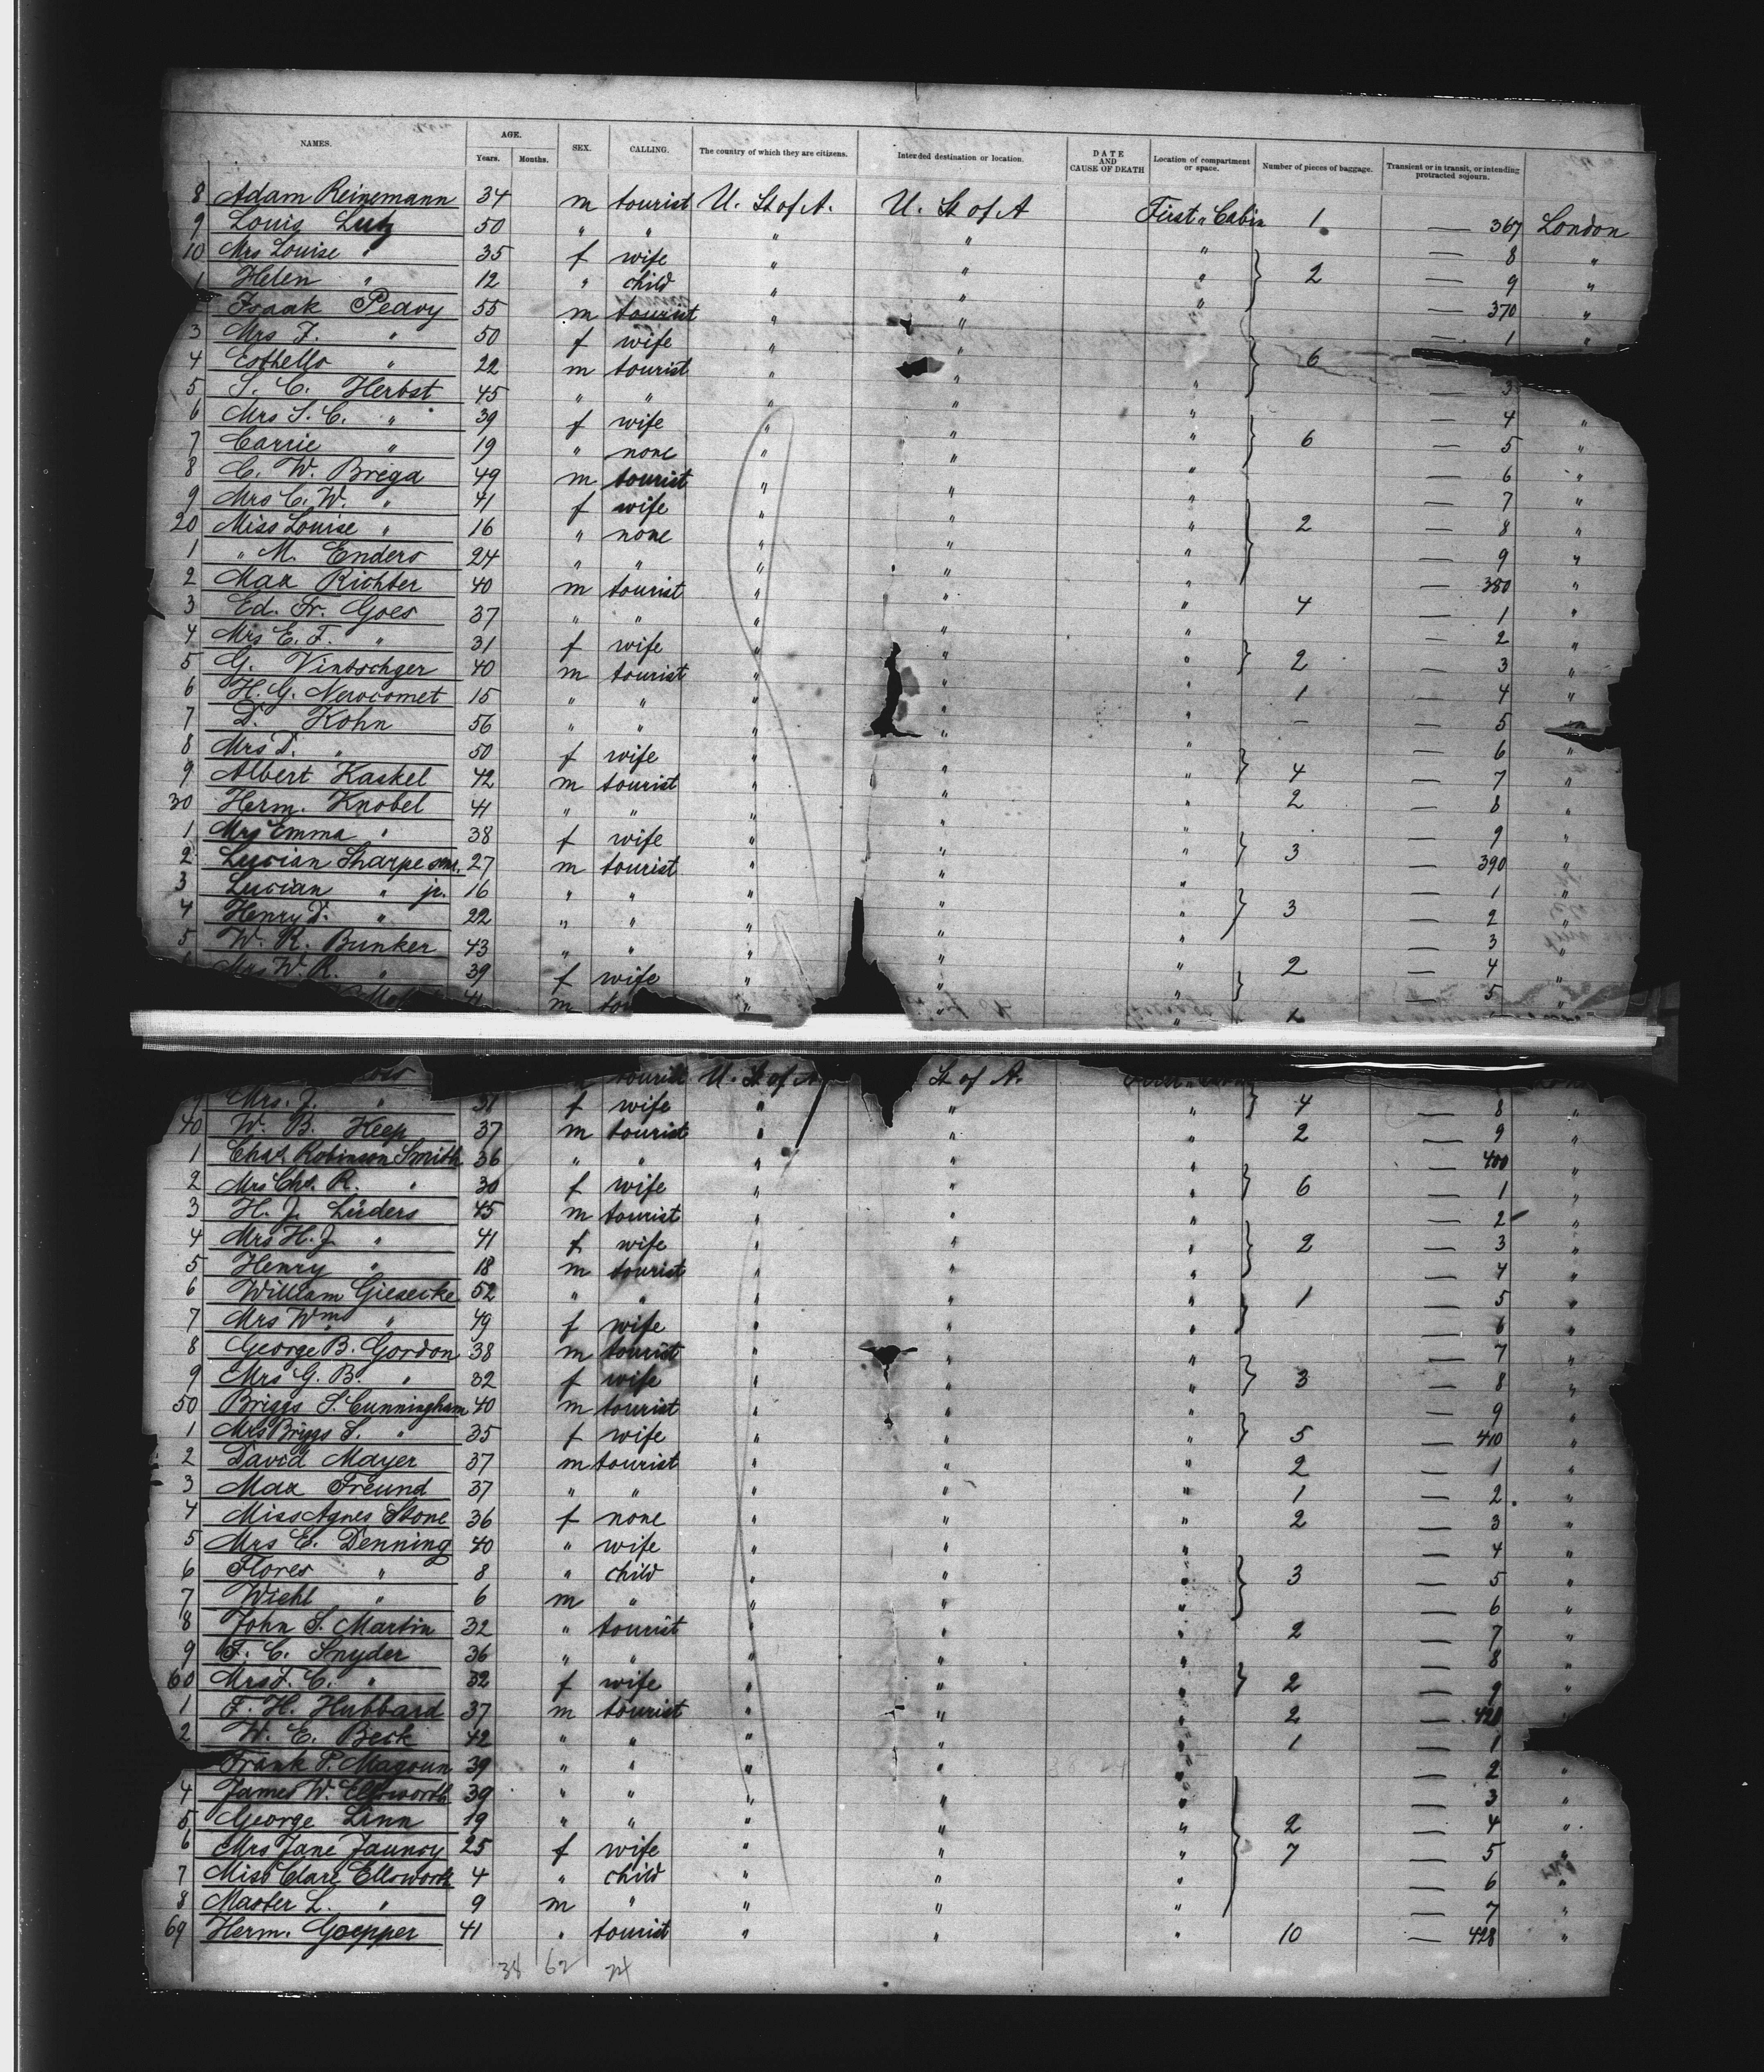 NAMES. AGE. Years. Months. SEX. CALLING. The country of which they are citizens. Intended destination or location. DATE AND CAUSE OF DEATH Location of compartment or space. Number of pieces of baggage. Transient or in transit, or intending protracted sojourn.
8 Adam Reinemann 34 m tourist U. St of A. U. St of A First " Cabin 1 — 367 London
9 Louis Lutz 50 " " " " " — 8 "
10 Mrs Louise " 35 f wife " " " 2 — 9 "
1 Helen " 12 " child " " " — 370 "
Isaak Peavy 55 m tourist " " — 1 "
3 Mrs I. " 50 f wife " 6
4 Esthello " 22 m tourist " " " — 3
5 S. C. Herbst 45 " " " " " — 4 "
6 Mrs S. C. " 39 f wife " " " 6 — 5 "
7 Carrie " 19 " none " " " — 6 "
8 C. W. Brega 49 m tourist " " " — 7 "
9 Mrs C. W. " 41 f wife " " " 2 — 8 "
20 Miss Louise " 16 " none " " " — 9 "
1 " M. Enders 24 " " " " " — 380 "
2 Max Richter 40 m tourist " " " 4 — 1 "
3 Ed. Fr. Goes 37 " " " " " — 2 "
4 Mrs E. F. " 31 f wife " " " 2 — 3 "
5 G. Vintschger 40 m tourist " " " 1 — 4 "
6 H. G. Newcomet 15 " " " " " — — 5 "
7 D. Kohn 56 " " " " " — 6 "
8 Mrs D. " 50 f wife " " " 4 — 7 "
9 Albert Kaskel 42 m tourist " " " 2 — 8 "
30 Herm. Knobel 41 " " " " " — 9 "
1 Mrs Emma " 38 f wife " " " 3 — 390 "
2 Lucian Sharpe snr. 27 m tourist " " " — 1 "
3 Lucian " jr. 16 " " " " " 3 — 2 "
4 Henry D. " 22 " " " " " — 3 "
5 W. R. Bunker 43 " " " " " 2 — 4 "
Mrs W. R. " 39 f wife " " " — 5 "
41 m " " "
tourist U. St of A St of A.
Mrs. J. " 38 f wife " " " 4 — 8 "
40 W. B. Keep 37 m tourist " " " 2 — 9 "
1 Chas. Robinson Smith 36 " " " " " 400 "
2 Mrs Chs. R. " 30 f wife " " " 6 — 1 "
3 H. J. Lüders 45 m tourist " " " — 2 "
4 Mrs H. J. " 41 f wife " " " 2 — 3 "
5 Henry " 18 m tourist " " " — 4 "
6 William Giesecke 52 " " " " " 1 — 5 "
7 Mrs Wm " 49 f wife " " " — 6 "
8 George B. Gordon 38 m tourist " " " — 7 "
9 Mrs G. B. " 32 f wife " " " 3 — 8 "
50 Briggs S. Cunningham 40 m tourist " " " — 9 "
1 Mrs Briggs S. " 35 f wife " " " 5 — 410 "
2 David Mayer 37 m tourist " " " 2 — 1 "
3 Max Freund 37 " " " " " 1 — 2 "
4 Miss Agnes Stone 36 f none " " " 2 — 3 "
5 Mrs E. Denning 40 " wife " " " — 4 "
6 Flores " 8 " child " " " 3 — 5 "
7 Wiehl " 6 m " " " " — 6 "
8 John S. Martin 32 " tourist " " " 2 — 7 "
9 F. C. Snyder 36 " " " " " — 8 "
60 Mrs F. C. " 32 f wife " " " 2 — 9 "
1 F. H. Hubbard 37 m tourist " " " 2 — 420 "
2 W. E. Beck 42 " " " " " 1 — 1 "
Frank P. Magoun 39 " " " " " — 2 "
4 James W. Ellsworth 39 " " " " " — 3 "
5 George Linn 19 " " " " " 2 — 4 "
6 Mrs Jane Jauncy 25 f wife " " " 7 — 5 "
7 Miss Clare Ellsworth 4 " child " " " — 6 "
8 Master L. " 9 m " " " " — 7 "
69 Herm. Goepper 41 " tourist " " " 10 — 428 "
38 62